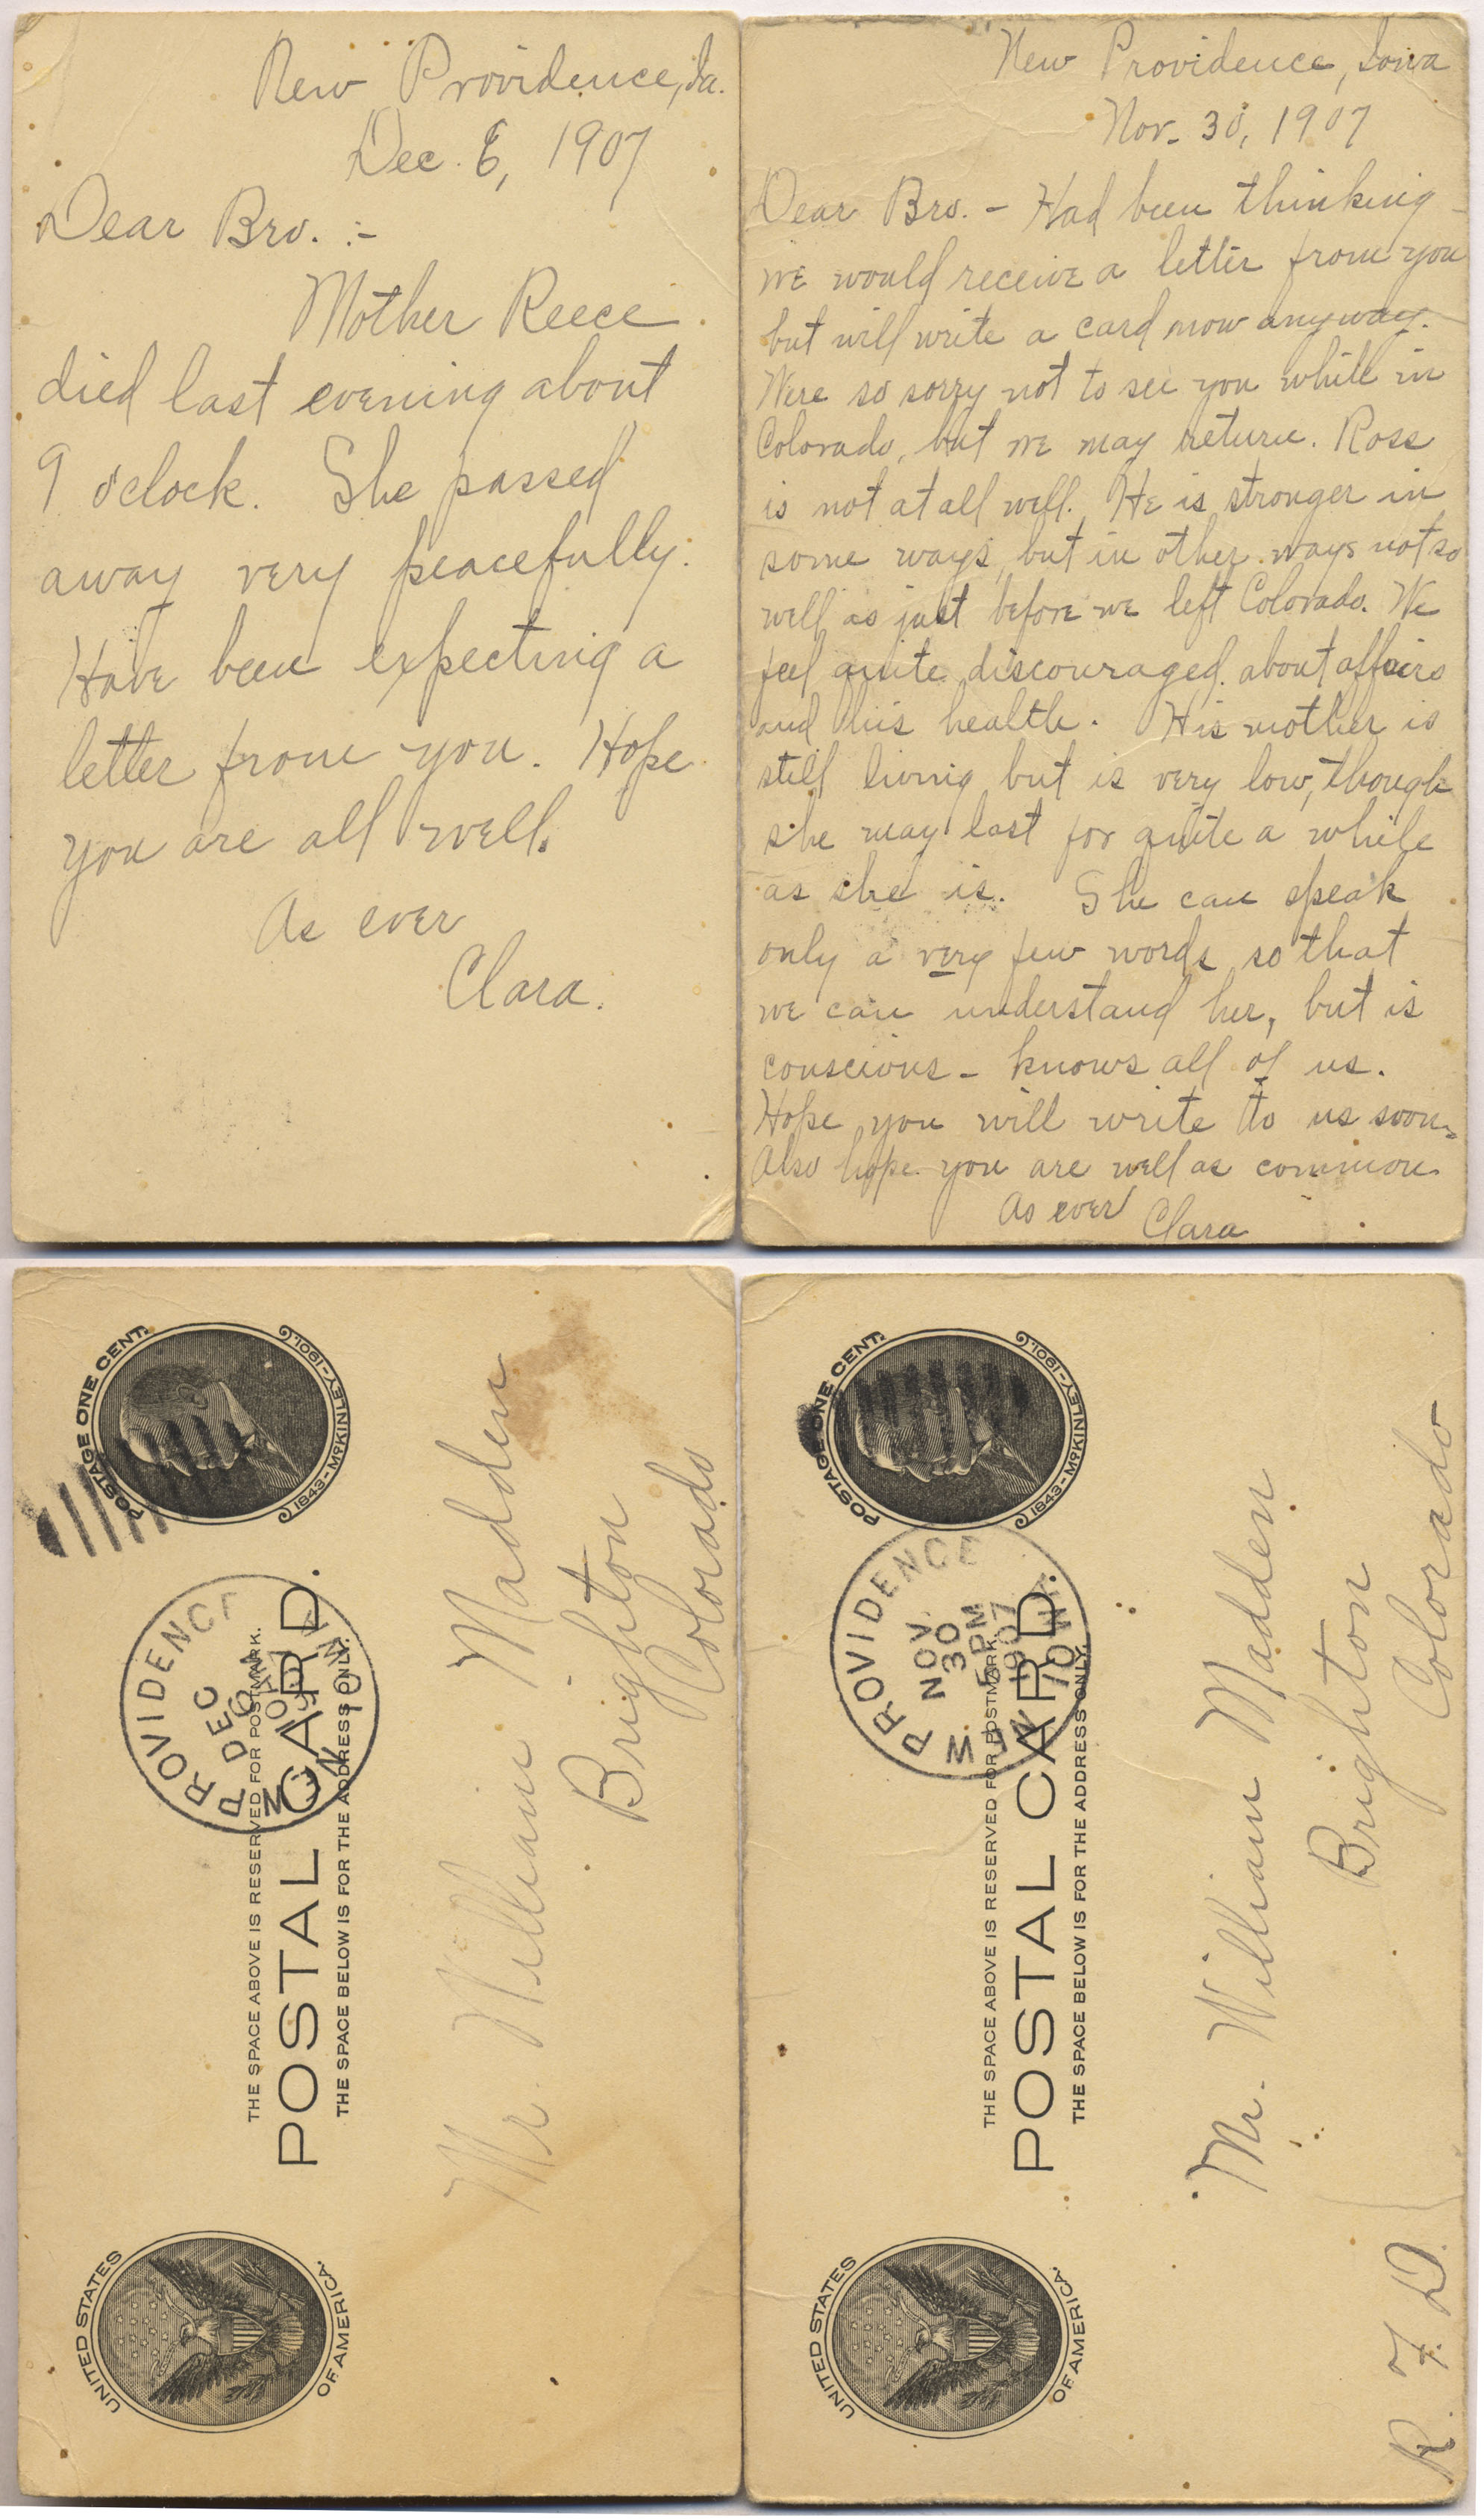 New Providence, Ia.
Dec. 6, 1907
Dear Bro. :-
Mother Reece
died last evening about
9 o'clock. She passed
away very peacefully.
Have been expecting a
letter from you. Hope
you are all well.
As ever
Clara.
New Providence, Iowa
Nov. 30, 1907
Dear Bro. - Had been thinking
we would receive a letter from you
but will write a card now anyway.
Were so sorry not to see you while in
Colorado, but we may return. Ross
is not at all well. He is stronger in
some ways, but in other ways not so
well as just before we left Colorado. We
feel quite discouraged about affairs
and his health. His mother is
still living but is very low, though
she may last for quite a while
as she is. She can speak
only a very few words so that
we can understand her, but is
conscious - knows all of us.
Hope you will write to us soon.
Also hope you are well as common.
As ever Clara
UNITED STATES
OF AMERICA.
THE SPACE ABOVE IS RESERVED FOR POSTMARK.
POSTAL CARD.
THE SPACE BELOW IS FOR THE ADDRESS ONLY.
POSTAGE ONE CENT.
1843-McKINLEY-1901.
NEW PROVIDENCE
IOWA
DEC
6
Mr. William Madden
Brighton
Colorado
UNITED STATES
OF AMERICA.
THE SPACE ABOVE IS RESERVED FOR POSTMARK.
POSTAL CARD.
THE SPACE BELOW IS FOR THE ADDRESS ONLY.
POSTAGE ONE CENT.
1843-McKINLEY-1901.
NEW PROVIDENCE
IOWA
NOV.
30
PM
1907
Mr. William Madden
Brighton
R. F. D. Colorado